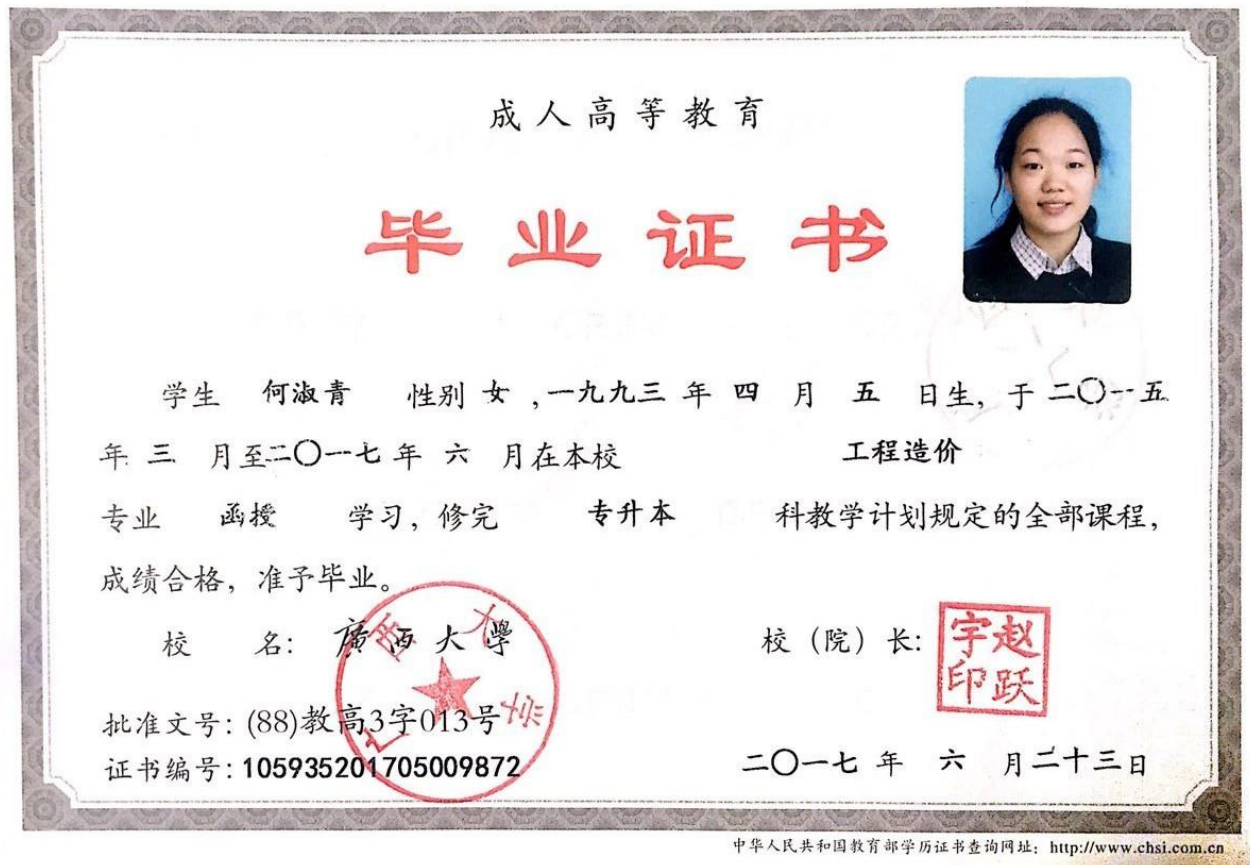 成人高等教育
毕业证书
学生 何淑青 性别 女 ,一九九三 年 四 月 五 日生, 于 二〇一五
年 三 月至二〇一七 年 六 月在本校 工程造价
专业 函授 学习, 修完 专升本 科教学计划规定的全部课程,
成绩合格, 准予毕业。
校 名: 廣西大學
广西大学
校 (院) 长:
赵跃宇印
批准文号: (88)教高3字013号
证书编号: 105935201705009872
二〇一七 年 六 月二十三日
中华人民共和国教育部学历证书查询网址: http://www.chsi.com.cn